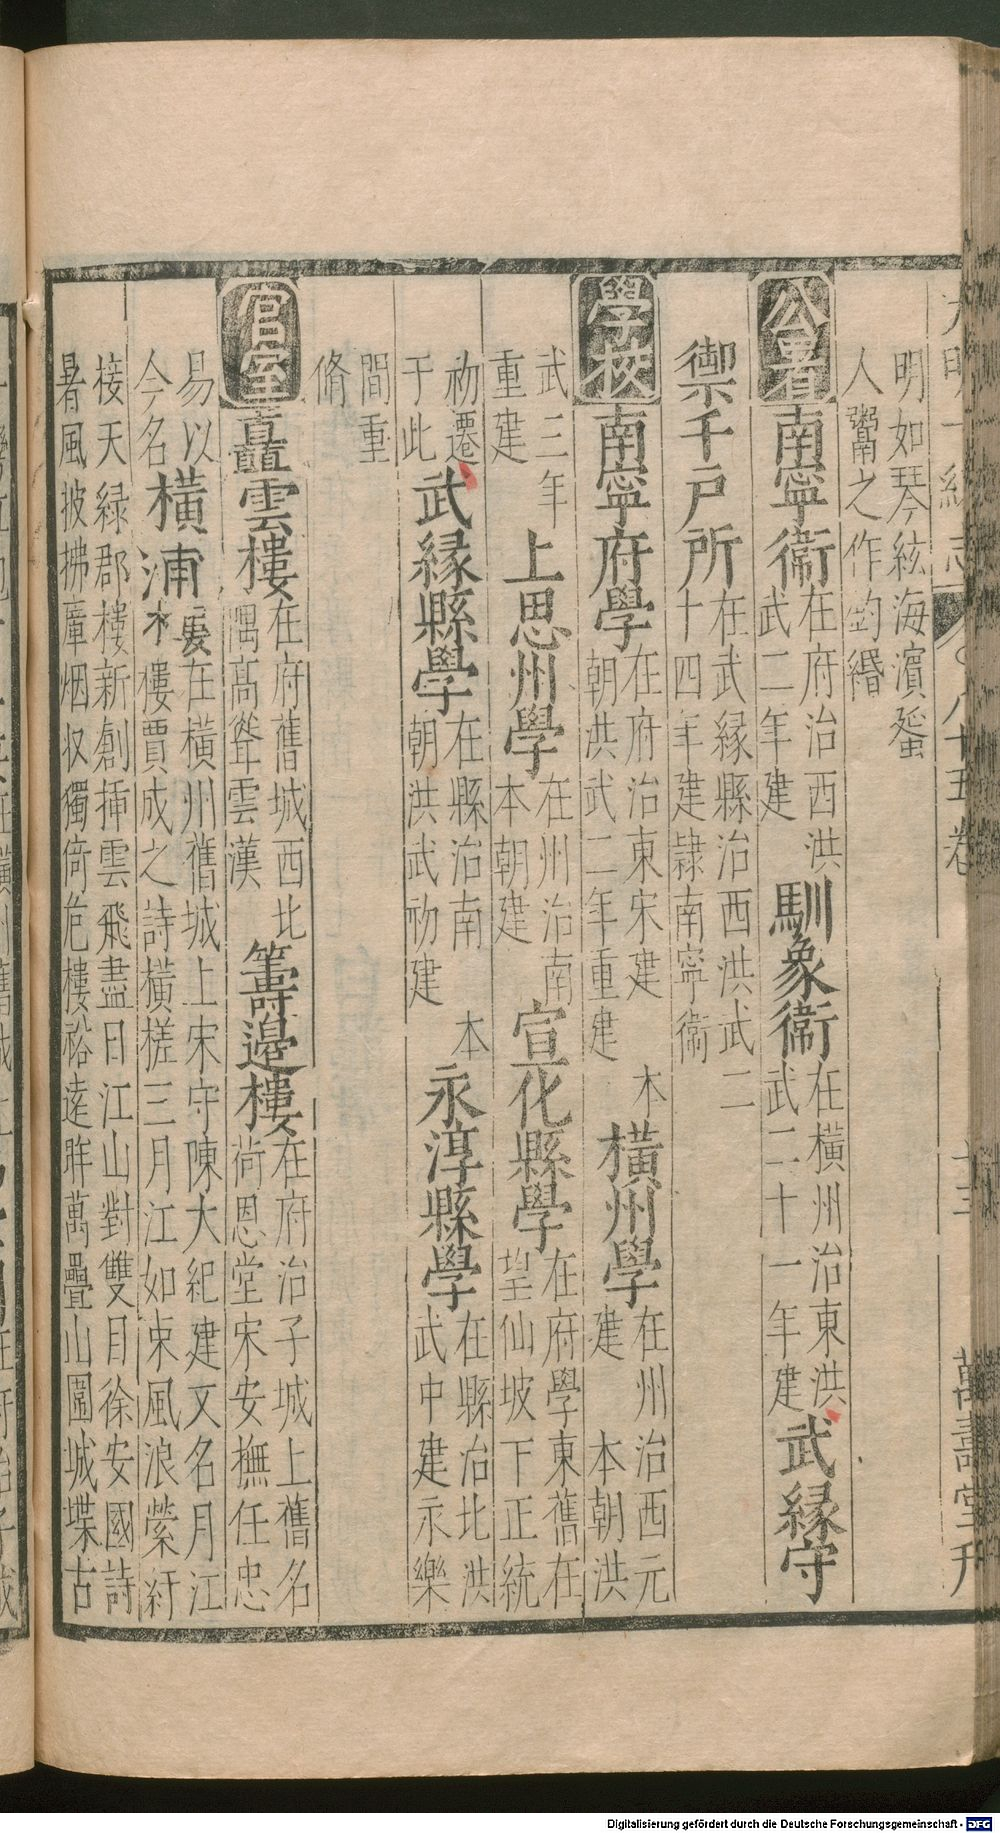 大明一統志 八十五卷 十三 萬壽堂刊
明如琴絃海濱蜑
人鬻之作釣緡
公署 南寧衞 在府治西洪
武二年建 馴象衞 在橫州治東洪
武二十一年建 武緣守
禦千戶所 在武緣縣治西洪武二
十四年建隸南寧衞
學校 南寧府學 在府治東宋建 本
朝洪武二年重建 橫州學 在州治西元
建 本朝洪
武三年
重建 上思州學 在州治南
本朝建 宣化縣學 在府學東舊在
望仙坡下正統
初遷
于此 武緣縣學 在縣治南 本
朝洪武初建 永淳縣學 在縣治北洪
武中建永樂
間重
脩
宮室 矗雲樓 在府舊城西北
隅高聳雲漢 籌邊樓 在府治子城上舊名
尚恩堂宋安撫任忠
易以
今名 橫浦樓 在橫州舊城上宋守陳大紀建又名月江
樓賈成之詩橫槎三月江如束風浪縈紆
接天綠郡樓新創揷雲飛盡日江山對雙目徐安國詩
暑風披拂廑烟収獨倚危樓裕遠眸萬疊山圍城堞古
Digitalisierung gefördert durch die Deutsche Forschungsgemeinschaft - DFG